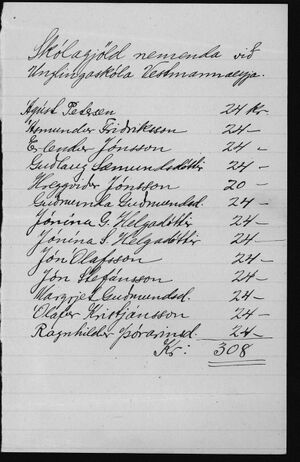 Skólagjöld nemenda við
Unglingaskóla Vestmannaeyja.
Ágúst Petersen 24 kr.
Ásmundur Friðriksson 24 –
Erlendur Jónsson 24 –
Guðlaug Sæmundsdóttir 24 –
Hreggviður Jónsson 20 –
Guðmunda Guðmundsd. 24 –
Jónína G. Helgadóttir 24 –
Jónína S. Helgadóttir 24 –
Jón Ólafsson 24 –
Jón Stefánsson 24 –
Margrjet Guðmundsd. 24 –
Ólafur Kristjánsson 24 –
Ragnhildur Þórarinsd. 24 –
Kr: 308